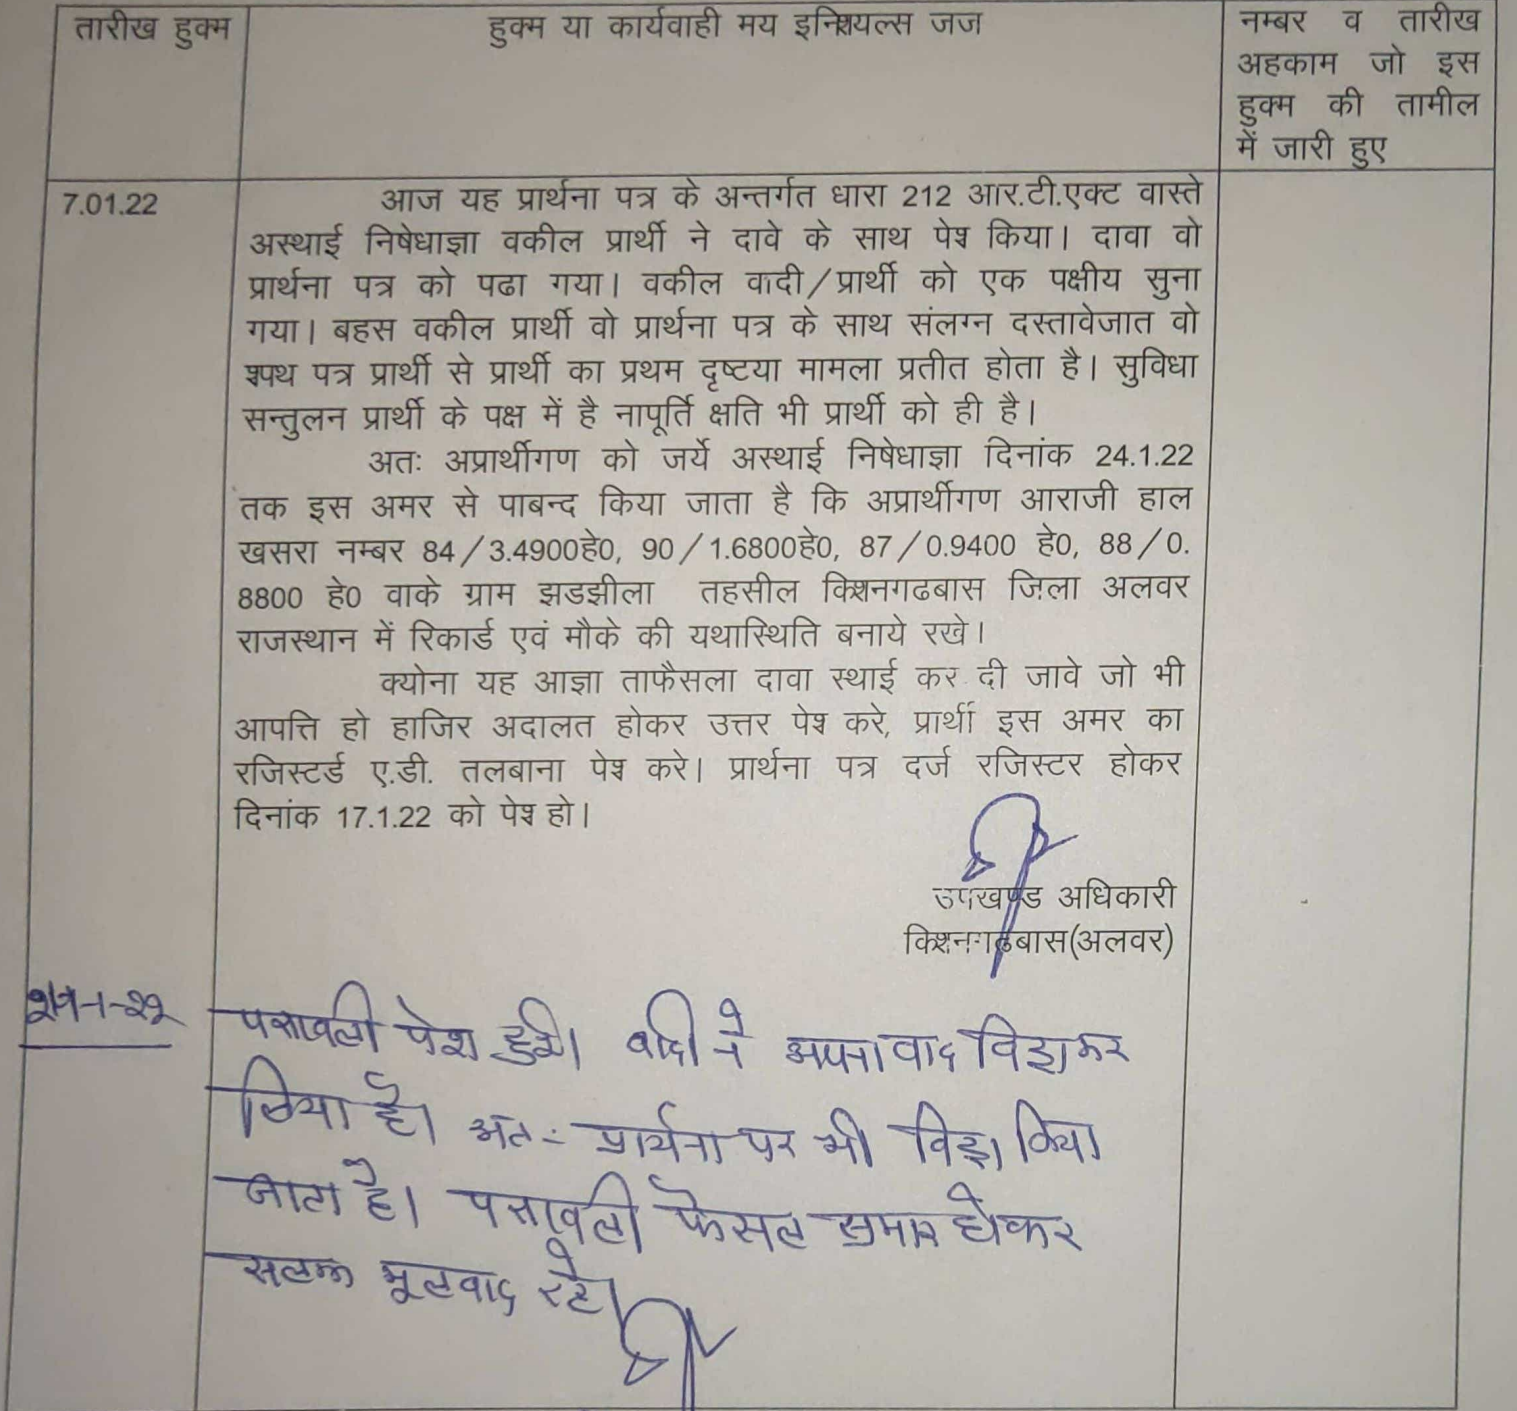 तारीख हुक्म
हुक्म या कार्यवाही मय इनिशियल्स जज
नम्बर व तारीख
अहकाम जो इस
हुक्म की तामील
में जारी हुए
7.01.22
आज यह प्रार्थना पत्र के अन्तर्गत धारा 212 आर.टी.एक्ट वास्ते
अस्थाई निषेधाज्ञा वकील प्रार्थी ने दावे के साथ पेश किया। दावा वो
प्रार्थना पत्र को पढा गया। वकील वादी/प्रार्थी को एक पक्षीय सुना
गया। बहस वकील प्रार्थी वो प्रार्थना पत्र के साथ संलग्न दस्तावेजात वो
श्पथ पत्र प्रार्थी से प्रार्थी का प्रथम दृष्टया मामला प्रतीत होता है। सुविधा
सन्तुलन प्रार्थी के पक्ष में है नापूर्ति क्षति भी प्रार्थी को ही है।
अतः अप्रार्थीगण को जर्ये अस्थाई निषेधाज्ञा दिनांक 24.1.22
तक इस अमर से पाबन्द किया जाता है कि अप्रार्थीगण आराजी हाल
खसरा नम्बर 84/3.4900हे0, 90/1.6800हे0, 87/0.9400 हे0, 88/0.
8800 हे0 वाके ग्राम झडझीला तहसील किशनगढबास जिला अलवर
राजस्थान में रिकार्ड एवं मौके की यथास्थिति बनाये रखे।
क्योना यह आज्ञा ताफैसला दावा स्थाई कर दी जावे जो भी
आपत्ति हो हाजिर अदालत होकर उत्तर पेश करे, प्रार्थी इस अमर का
रजिस्टर्ड ए.डी. तलबाना पेश करे। प्रार्थना पत्र दर्ज रजिस्टर होकर
दिनांक 17.1.22 को पेश हो।
उपखण्ड अधिकारी
किशनगढबास(अलवर)
पत्रावली पेश हुई। वादी ने अपना वाद विड्रा कर
लिया है। अतः प्रार्थना पत्र भी विड्रा किया
जाता है। पत्रावली फैसल शुमार होकर
सलग्न मूलवाद रहे।